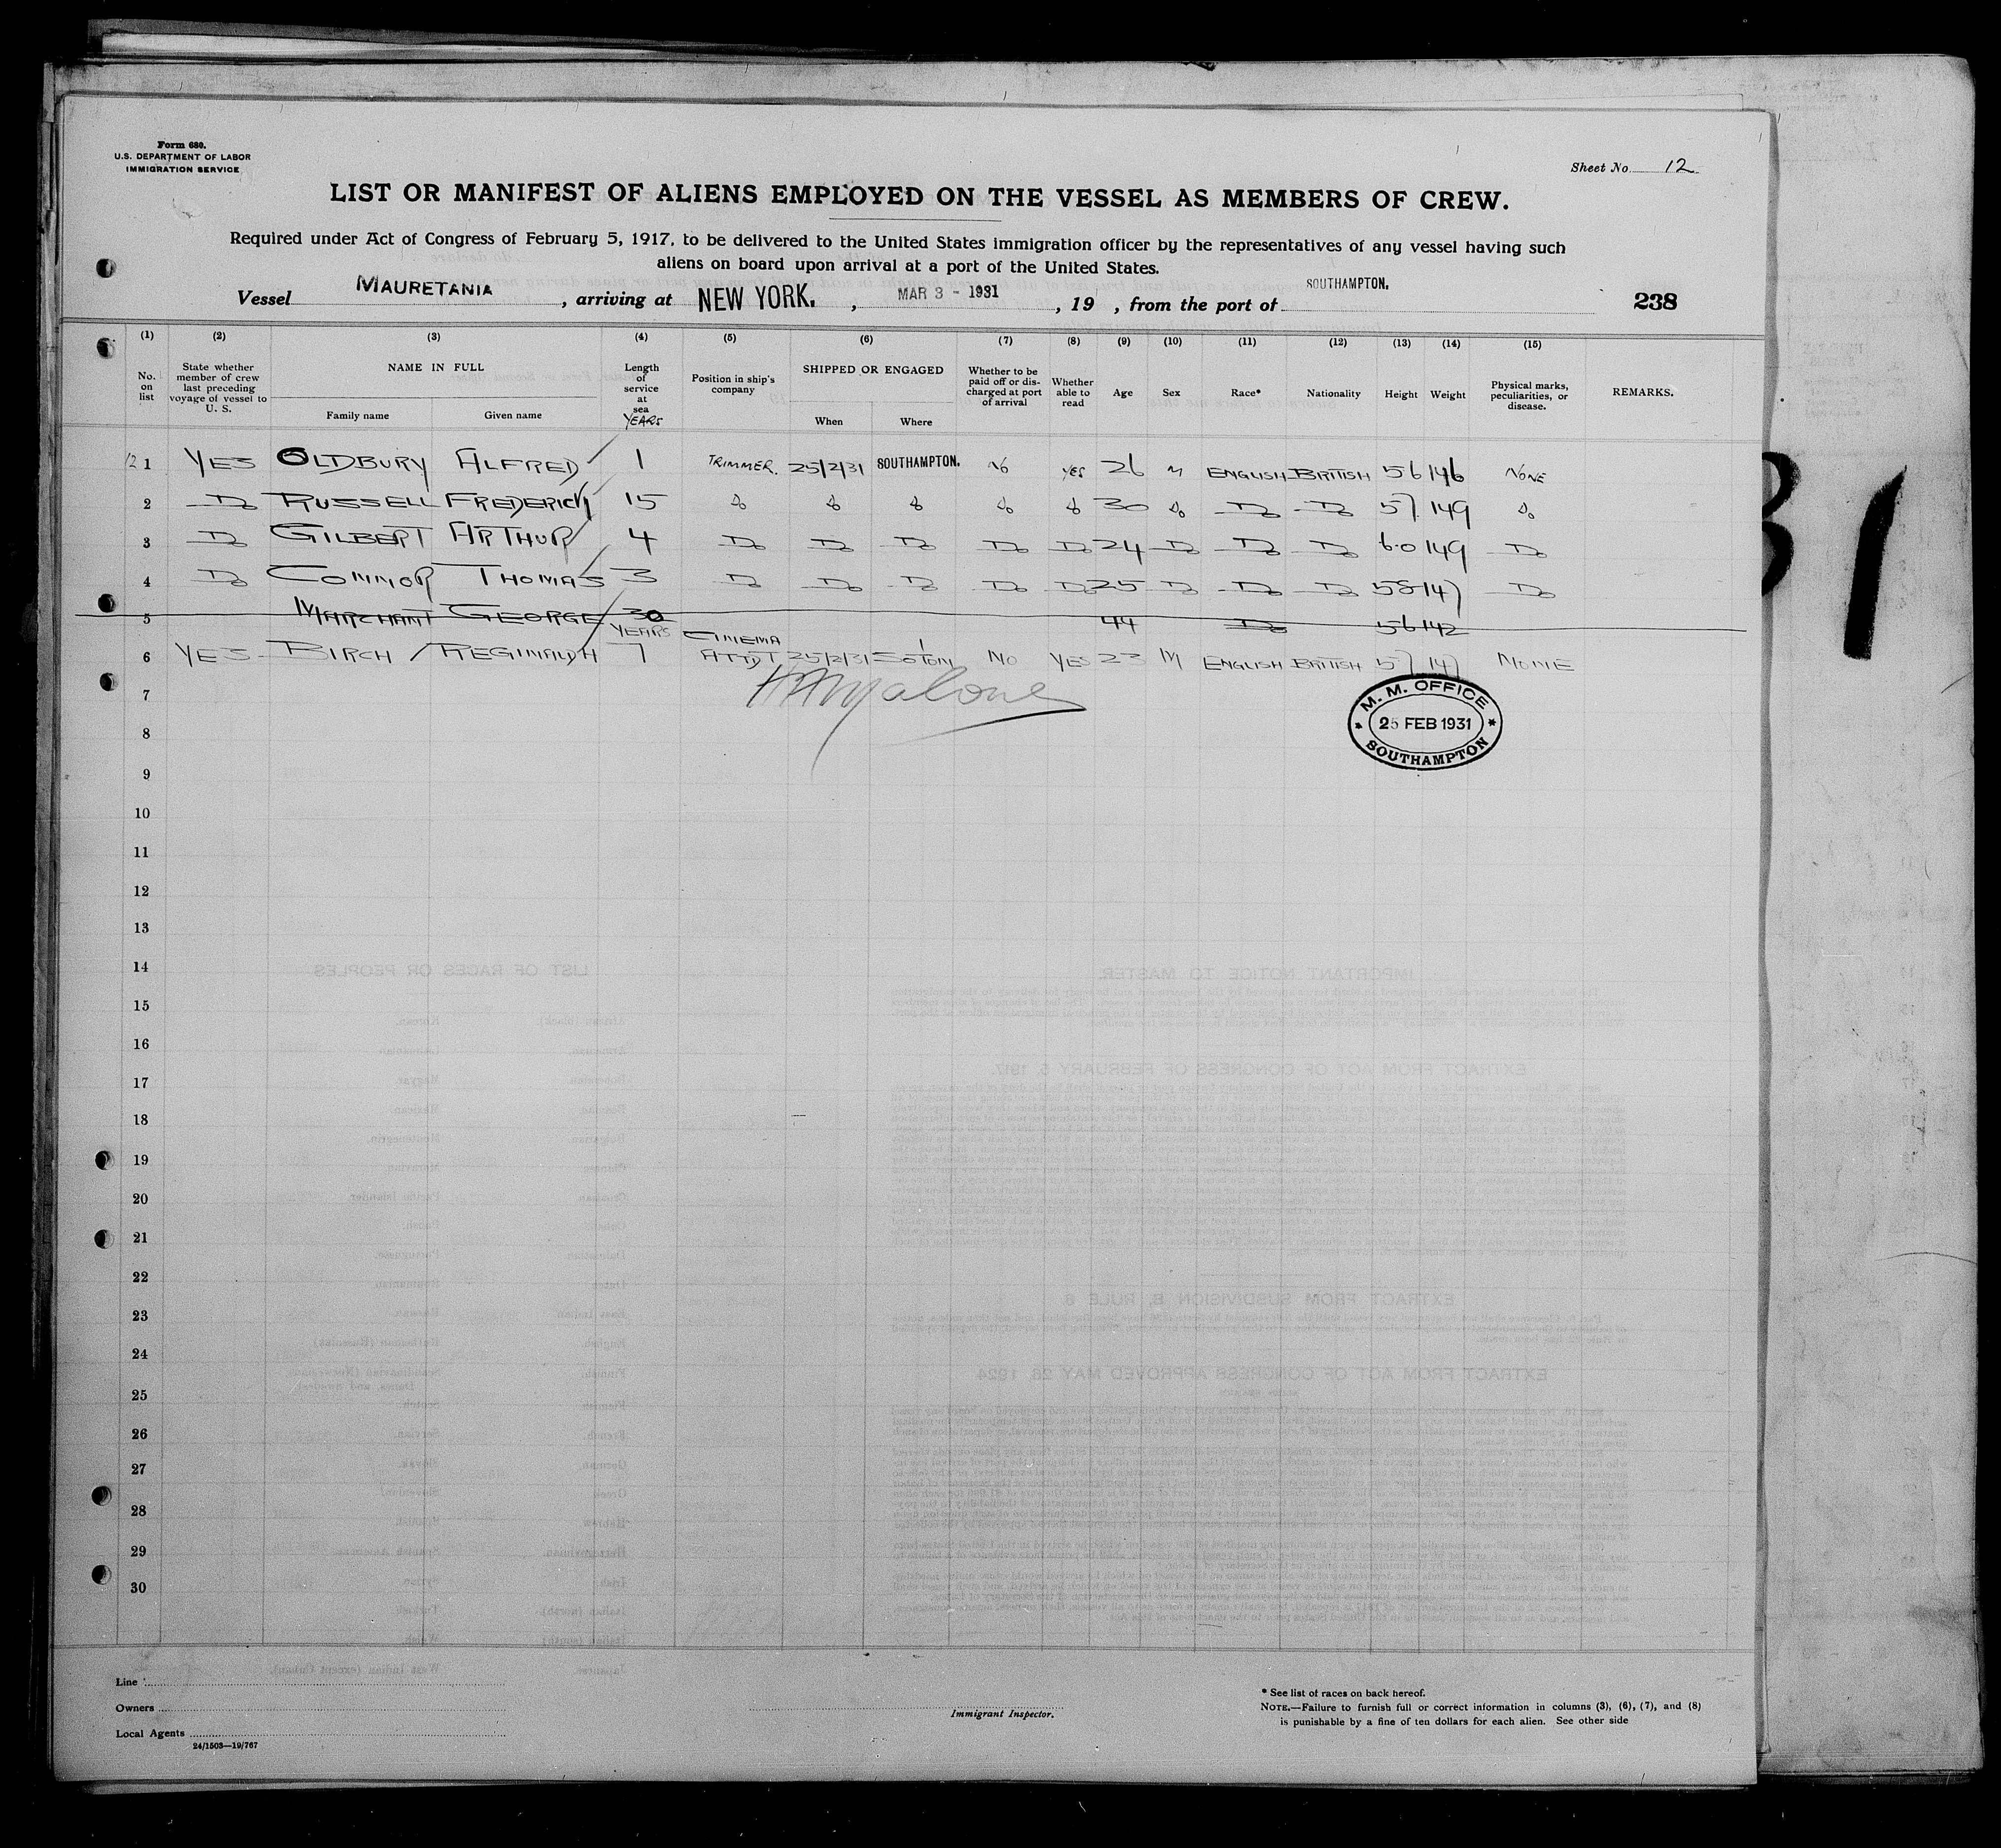 Form 680.
U.S. DEPARTMENT OF LABOR
IMMIGRATION SERVICE
Sheet No. 12
LIST OR MANIFEST OF ALIENS EMPLOYED ON THE VESSEL AS MEMBERS OF CREW.
Required under Act of Congress of February 5, 1917, to be delivered to the United States immigration officer by the representatives of any vessel having such
aliens on board upon arrival at a port of the United States.
Vessel MAURETANIA, arriving at NEW YORK., MAR 3 - 1931, 19 , from the port of SOUTHAMPTON. 238
(1) (2) (3) (4) (5) (6) (7) (8) (9) (10) (11) (12) (13) (14) (15)
No. on list State whether member of crew last preceding voyage of vessel to U. S. NAME IN FULL Family name Given name Length of service at sea YEARS Position in ship's company SHIPPED OR ENGAGED When Where Whether to be paid off or discharged at port of arrival Whether able to read Age Sex Race* Nationality Height Weight Physical marks, peculiarities, or disease. REMARKS.
12 1 YES OLDBURY ALFRED 1 TRIMMER. 25/2/31 SOUTHAMPTON. NO YES 26 M ENGLISH BRITISH 5 6 146 NONE
2 Do RUSSELL FREDERICK 15 do do do do do 30 do Do Do 5 7 149 do
3 Do GILBERT ARTHUR 4 Do Do Do Do Do 24 Do Do Do 6.0 149 Do
4 Do CONNOR THOMAS 3 Do Do Do Do Do 25 Do Do Do 5 8 147 Do
5 MARCHANT GEORGE 30 44 Do 5 6 142
6 YES BIRCH REGINALD H 7 YEARS CINEMA ATTDT 25/2/31 SOTON NO YES 23 M ENGLISH BRITISH 5 7 147 NONE
7
M. M. OFFICE
25 FEB 1931
SOUTHAMPTON
8
9
10
11
12
13
14
15
16
17
18
19
20
21
22
23
24
25
26
27
28
29
30
Line
Owners
Local Agents
24/1503—19/767
Immigrant Inspector.
* See list of races on back hereof.
NOTE.—Failure to furnish full or correct information in columns (3), (6), (7), and (8)
is punishable by a fine of ten dollars for each alien. See other side